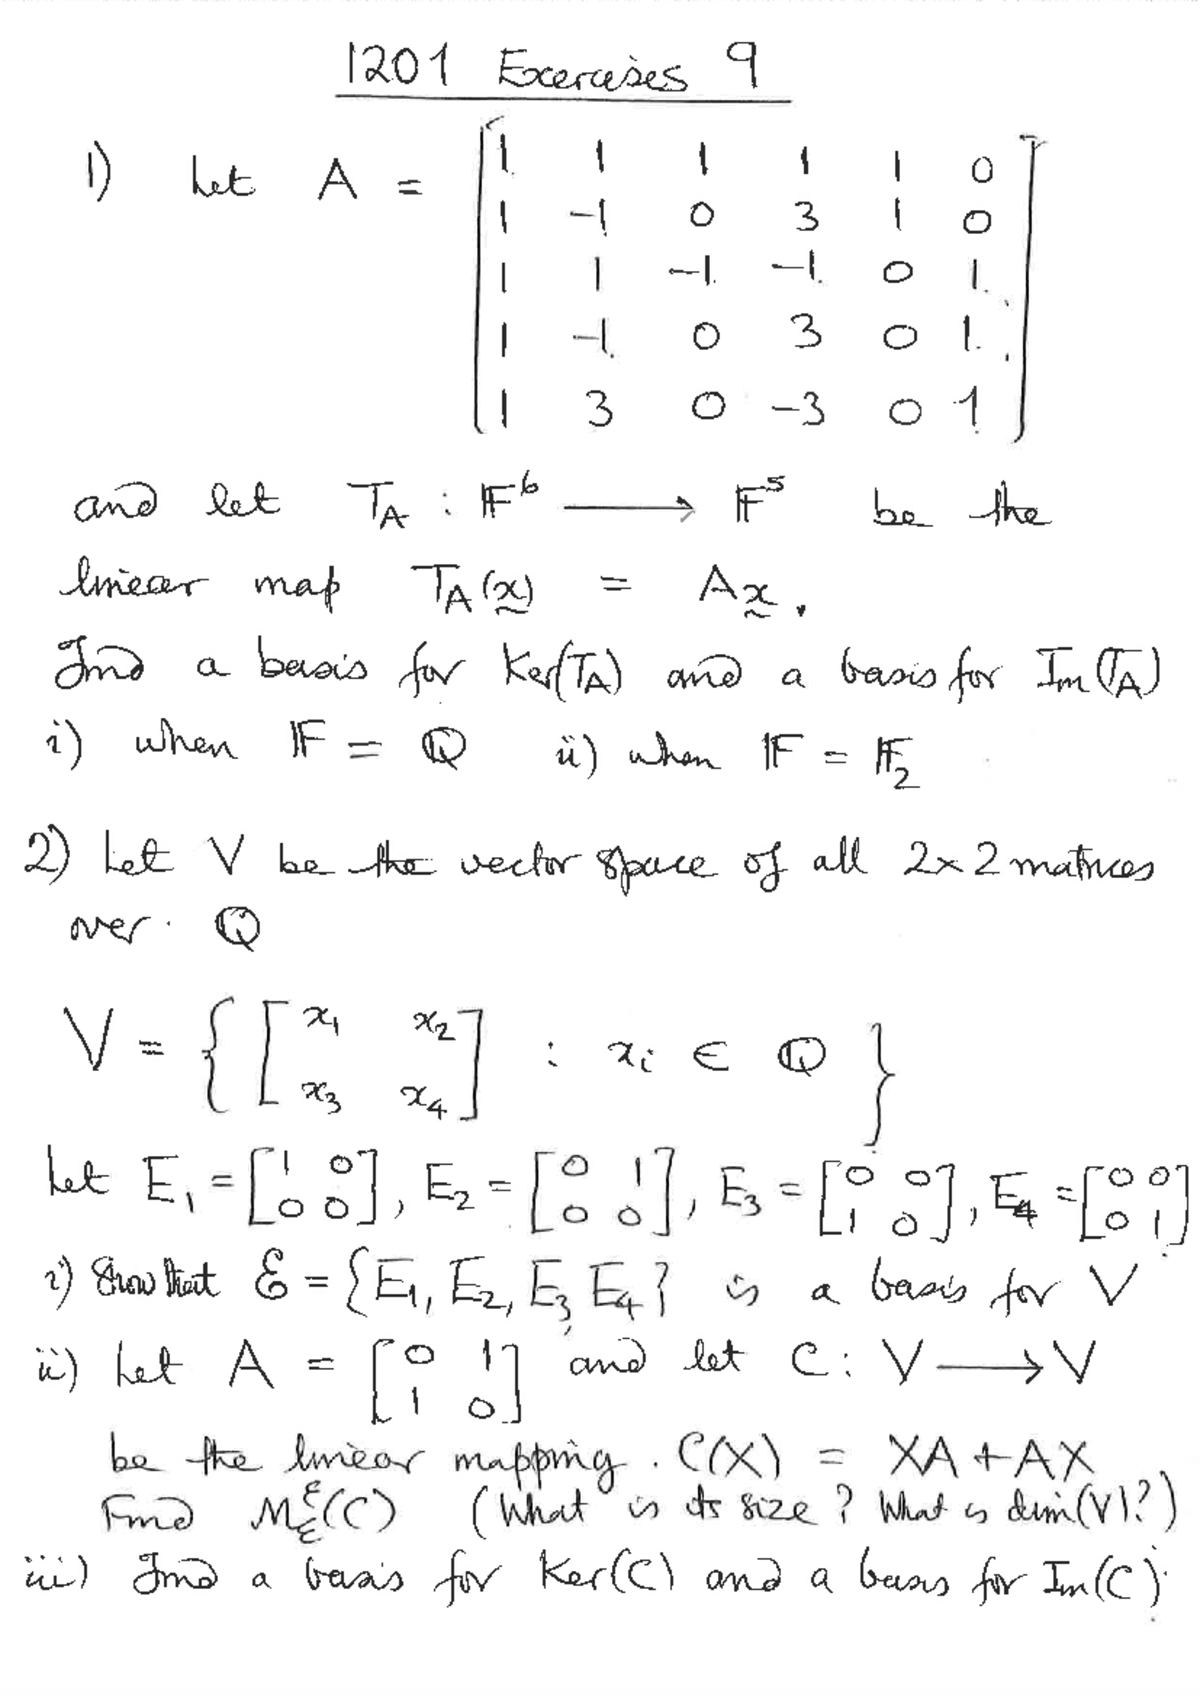 1201 Exercises 9
1) Let A = [ 1 1 1 1 1 0
1 -1 0 3 1 0
1 1 -1 -1 0 1
1 -1 0 3 0 1
1 3 0 -3 0 1 ]
and let T_A : 𝔽^6 ⟶ 𝔽^5 be the
linear map T_A(x) = Ax.
Find a basis for Ker(T_A) and a basis for Im(T_A)
i) when 𝔽 = ℚ ii) when 𝔽 = 𝔽_2
2) Let V be the vector space of all 2×2 matrices
over ℚ
V = { [ x_1 x_2
x_3 x_4 ] : x_i ∈ ℚ }
Let E_1 = [1 0; 0 0], E_2 = [0 1; 0 0], E_3 = [0 0; 1 0], E_4 = [0 0; 0 1]
i) Show that ℰ = {E_1, E_2, E_3, E_4} is a basis for V
ii) Let A = [0 1; 1 0] and let C : V ⟶ V
be the linear mapping. C(X) = XA + AX
Find M_ℰ^ℰ(C) (What is its size? What is dim(V)?)
iii) Find a basis for Ker(C) and a basis for Im(C).